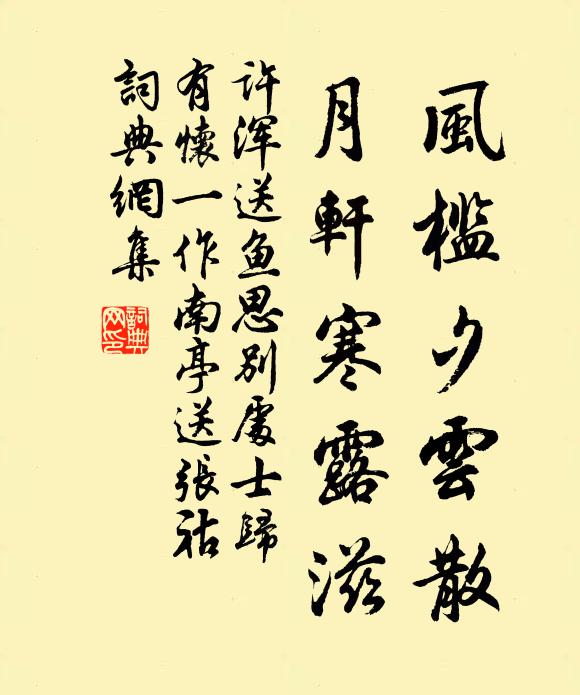 風檻夕雲散
月軒寒露滋
許渾送鱼思别處士歸
有懷一作南亭送張祜
詞典網集
詞典网印